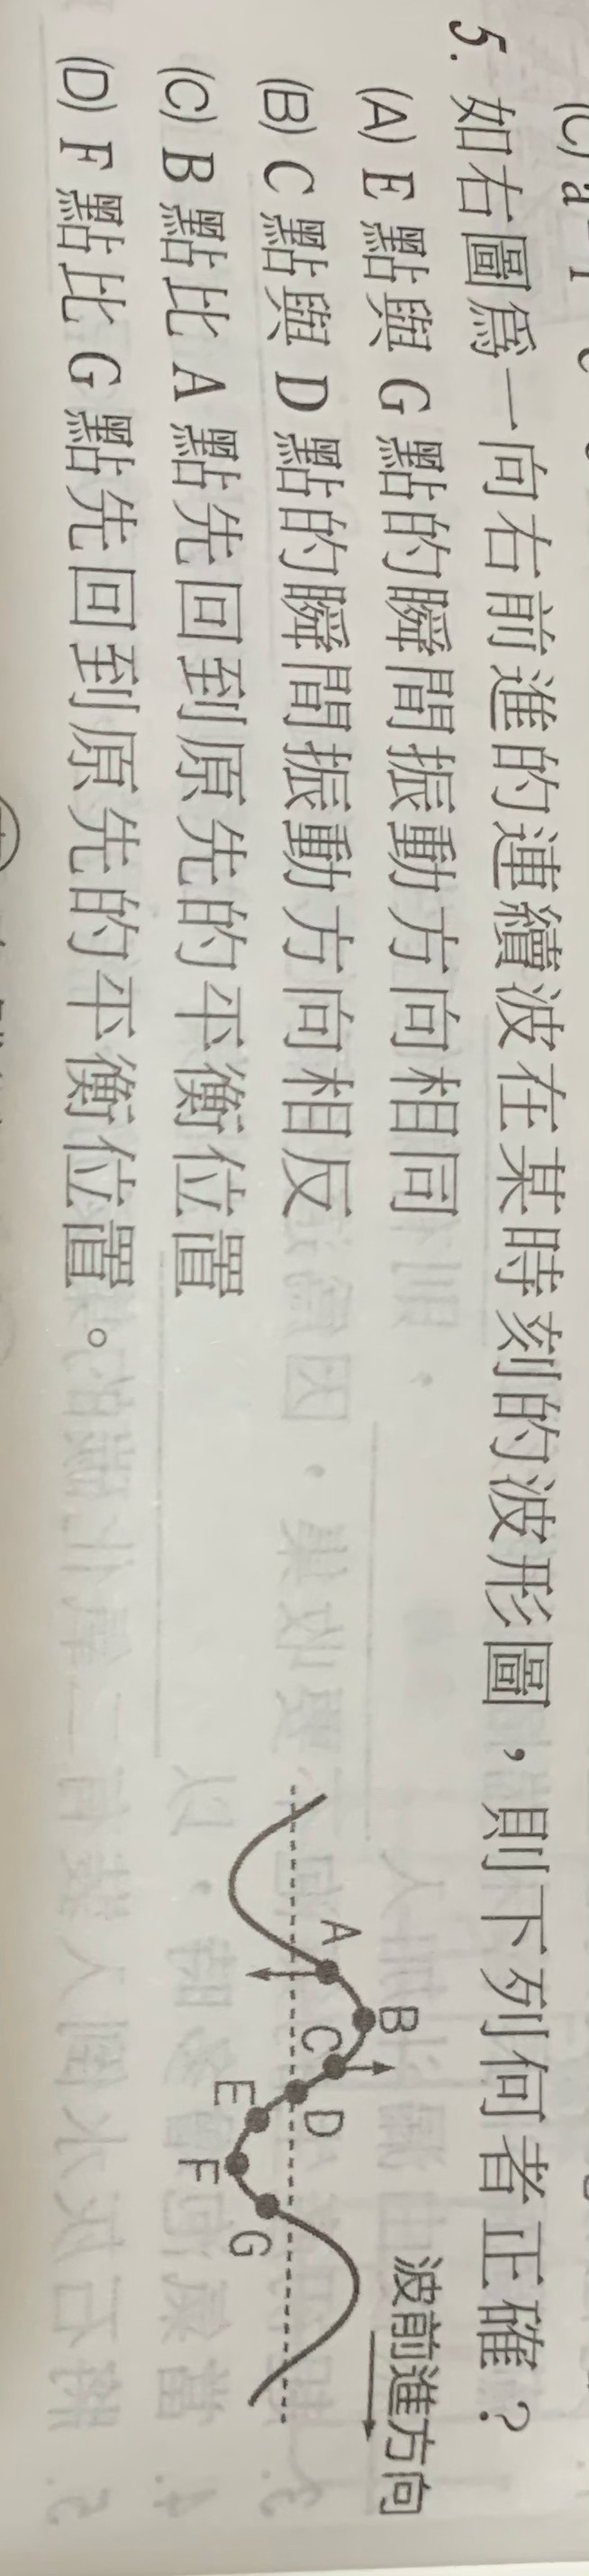 5. 如右圖為一向右前進的連續波在某時刻的波形圖，則下列何者正確？
(A) E 點與 G 點的瞬間振動方向相同
(B) C 點與 D 點的瞬間振動方向相反
(C) B 點比 A 點先回到原先的平衡位置
(D) F 點比 G 點先回到原先的平衡位置。
波前進方向
A
B
C
D
E
F
G